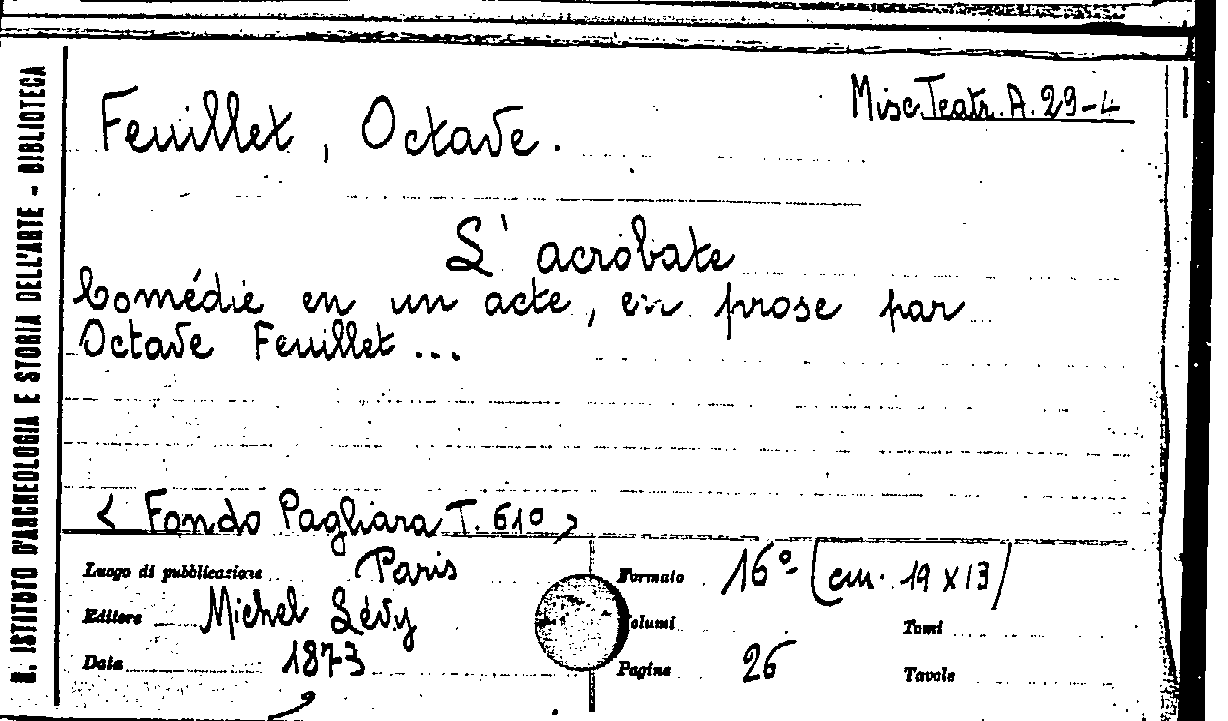 Misc. Teatr. A. 29-4
Feuillet, Octave.
L'acrobate
Comédie en un acte, en prose par
Octave Feuillet...
< Fondo Pagliara T. 610 >
Luogo di pubblicazione Paris
Editore Michel Lévy
Data 1873
Formato 16° (cm. 19 x 13)
Volumi
Tomi
Pagine 26
Tavole
R. ISTITUTO D'ARCHEOLOGIA E STORIA DELL'ARTE - BIBLIOTECA